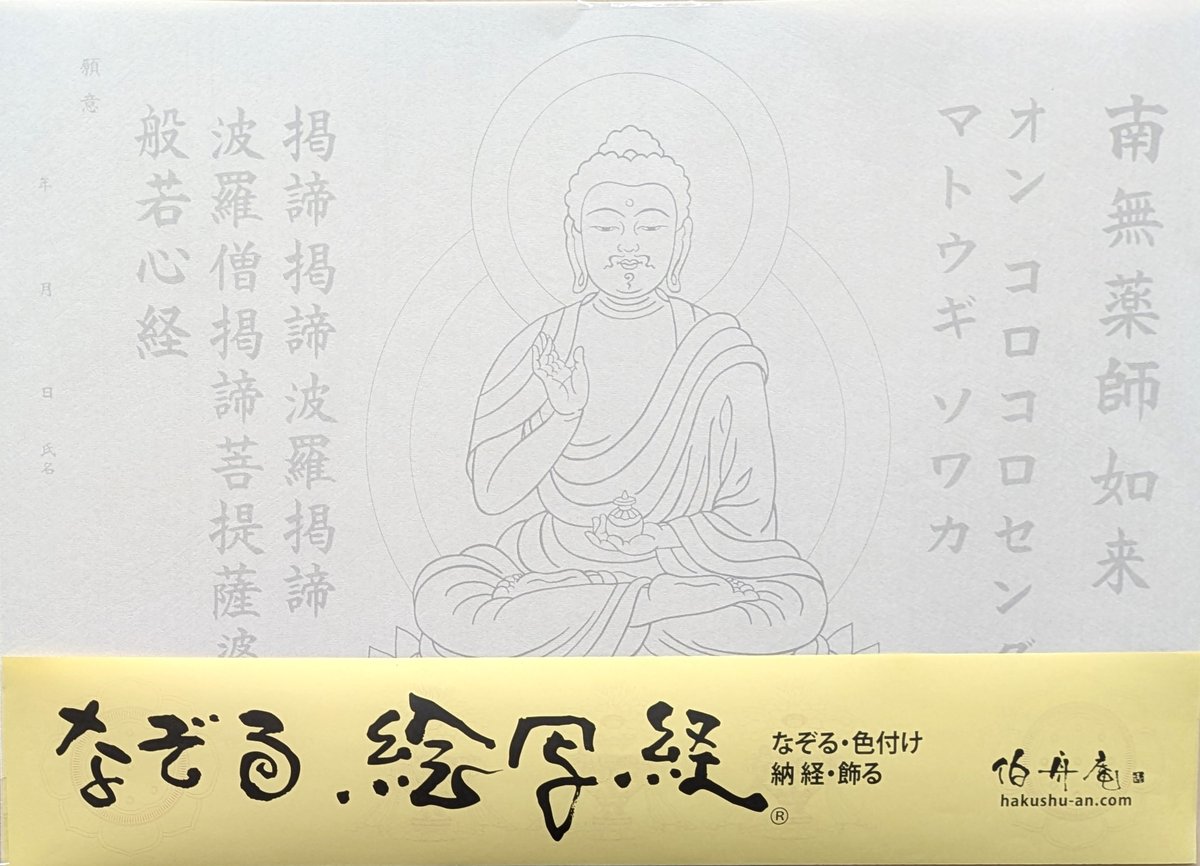 南無薬師如来
オン コロコロセンダ
マトウギ ソワカ
掲諦掲諦波羅掲諦
波羅僧掲諦菩提薩婆
般若心経
願意
年 月 日 氏名
なぞる絵写経
®
なぞる・色付け
納経・飾る
伯舟庵
hakushu-an.com